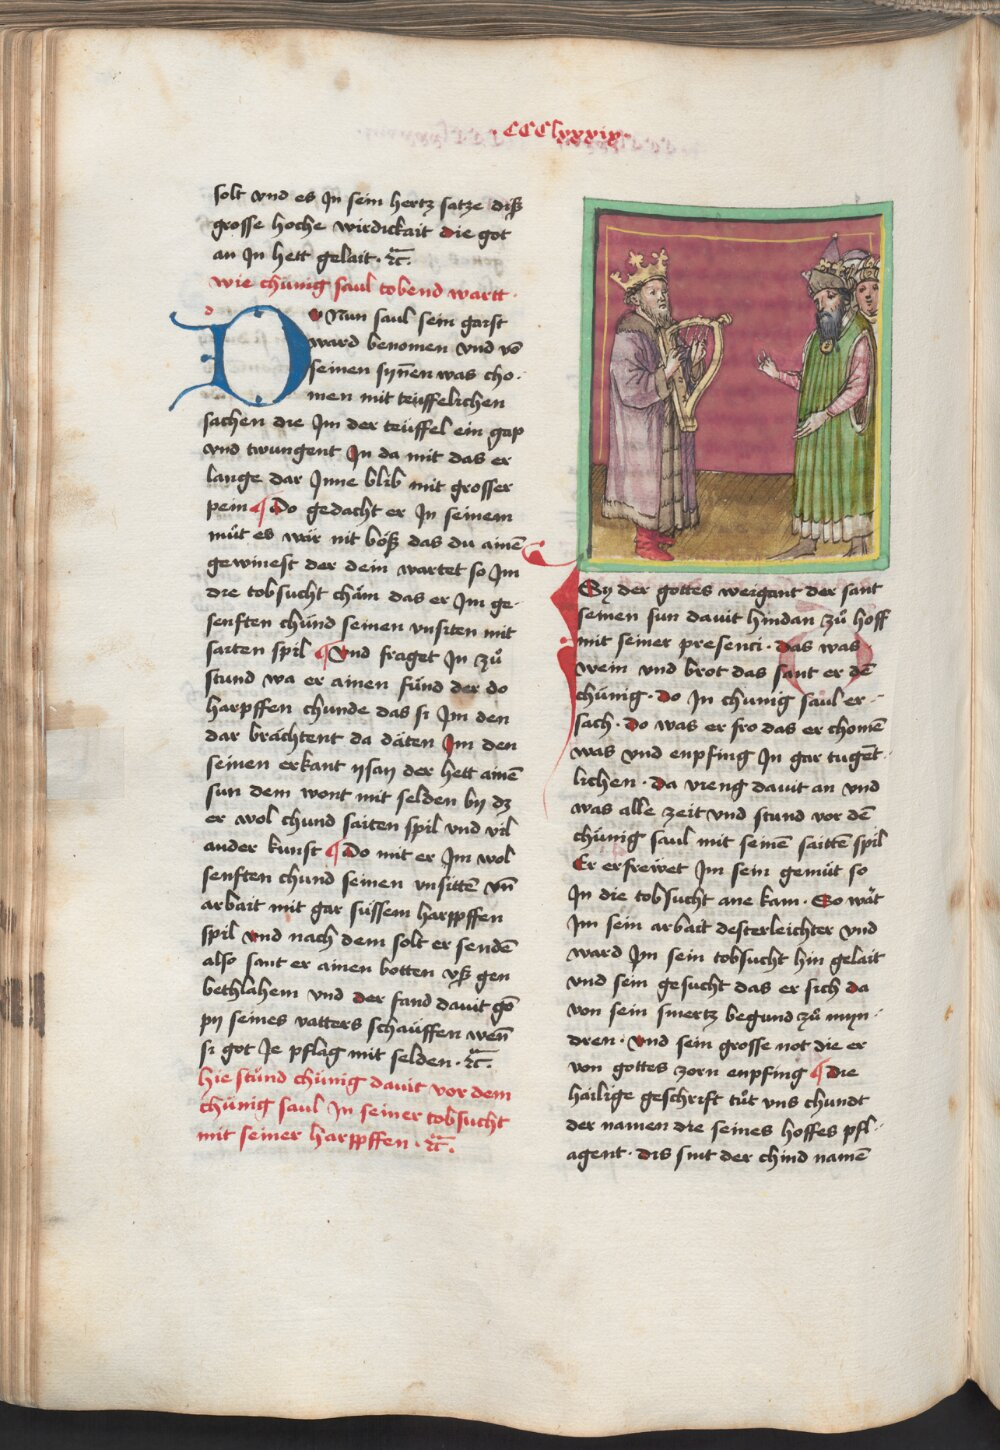 CCClxxxix
solt vnd es Jn sein hertz satze diß
grosse hoche wirdickait die got
an Jn hett gelait · ꝛc̄.
wie chünig saul tobend wartt ·
DO Nun saul sein gaist
ward benomen vnd vō
seinen syn̄en was cho ·
men mit teüffelichen
sachen die Jm der teüffel ein gap
vnd twungent Jn da mit das er
lange dar Jnne blib mit grosser
pein ¶ Do gedacht er Jn seinem
můt es wär nit böß das du ainē
gewinest der dein wartet so Jm
die tobsucht chäm das er Jm ge-
senften chünd seinen vnsiten mit
saiten spil ¶ Vnd fraget Jn zů
stund wa er ainen fünd der do
harpffen chunde das si Jm den
dar brächtent da däten Jm den
seinen erkant ysay der hett ainē
sun dem wont mit selden by dz
er wol chund saiten spil vnd vil
ander kunst ¶ Do mit er Jm wol
senften chund seinen vnsittē vn̄
arbait mit gar süssem harpffen
spil vnd nach dem solt er sendē
also sant er ainen botten vß gen
bethlahem vnd der fand dauit gō
py seines vatters schäuffen wen̄
si got Je pflag mit selden · ꝛc̄.
hie stůnd chünig dauit vor dem
chünig saul Jn seiner tobsucht
mit seiner harpffen · ꝛc̄.
Sy der gottes weigant der sant
seinen sun dauit hindan zů hoff
mit seiner presenci · das was
wein vnd brot das sant er dē
chünig · do Jn chunig saul er -
sach · do was er fro das er chomē
was vnd enpfing Jn gar tugēt
lichen · da vieng dauit an vnd
was alle zeit vnd stund vor dē
chünig saul mit seinē saittē spil
Er erfrewet Jm sein gemüt so
Jn die tobsucht ane kam · So wāt
Jm sein arbait desterleichter vnd
ward Jm sein tobsucht hin gelait
vnd sein gesucht das er sich da
von sein smertz begund zů myn -
dren · vnd sein grosse not die er
von gottes zorn enpfing ¶ die
häilige geschrift tůt vns chundt
der namen die seines hoffes pfl-
agent · dis sint der chind namē